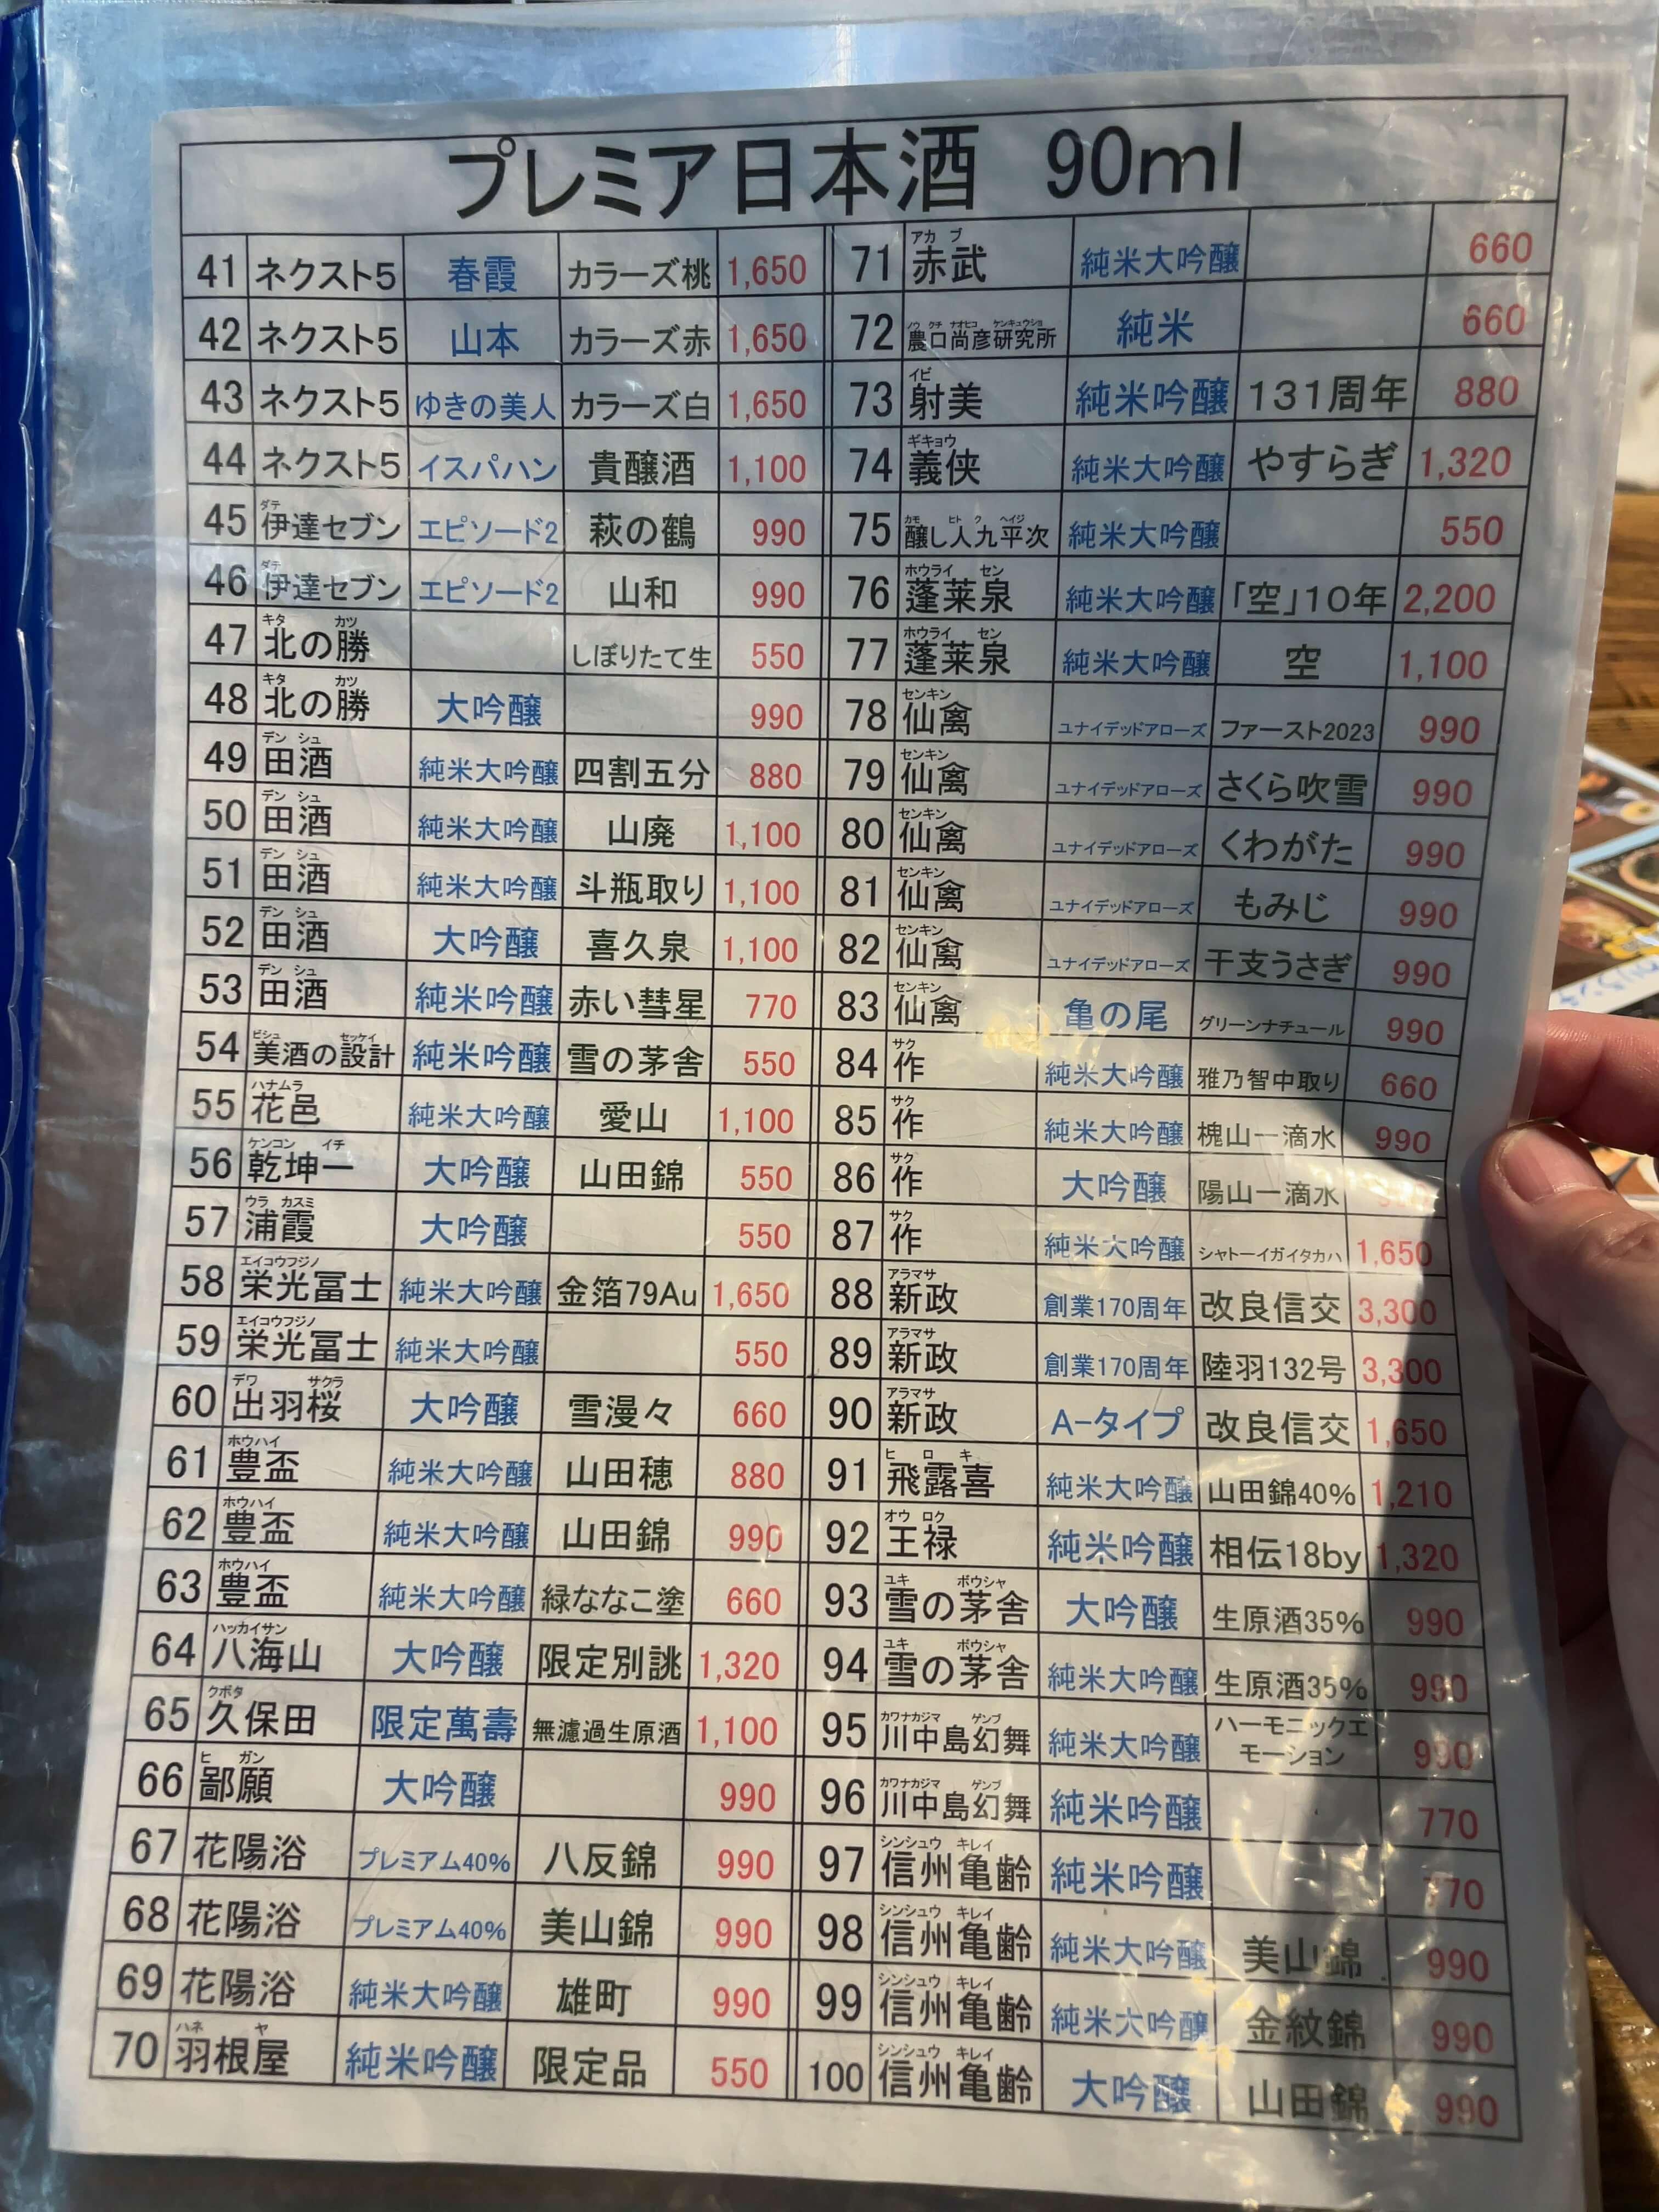 プレミア日本酒 90ml
41 ネクスト5 春霞 カラーズ桃 1,650
42 ネクスト5 山本 カラーズ赤 1,650
43 ネクスト5 ゆきの美人 カラーズ白 1,650
44 ネクスト5 イスパハン 貴醸酒 1,100
45 伊達セブン ダテ エピソード2 萩の鶴 990
46 伊達セブン ダテ エピソード2 山和 990
47 北の勝 キタ カツ しぼりたて生 550
48 北の勝 キタ カツ 大吟醸 990
49 田酒 デン シュ 純米大吟醸 四割五分 880
50 田酒 デン シュ 純米大吟醸 山廃 1,100
51 田酒 デン シュ 純米大吟醸 斗瓶取り 1,100
52 田酒 デン シュ 大吟醸 喜久泉 1,100
53 田酒 デン シュ 純米吟醸 赤い彗星 770
54 美酒の設計 ビシュ セッケイ 純米吟醸 雪の茅舎 550
55 花邑 ハナムラ 純米大吟醸 愛山 1,100
56 乾坤一 ケンコン イチ 大吟醸 山田錦 550
57 浦霞 ウラ カスミ 大吟醸 550
58 栄光冨士 エイコウフジノ 純米大吟醸 金箔79Au 1,650
59 栄光冨士 エイコウフジノ 純米大吟醸 550
60 出羽桜 デワ サクラ 大吟醸 雪漫々 660
61 豊盃 ホウハイ 純米大吟醸 山田穂 880
62 豊盃 ホウハイ 純米大吟醸 山田錦 990
63 豊盃 ホウハイ 純米大吟醸 緑ななこ塗 660
64 八海山 ハッカイサン 大吟醸 限定別誂 1,320
65 久保田 クボタ 限定萬壽 無濾過生原酒 1,100
66 鄙願 ヒ ガン 大吟醸 990
67 花陽浴 プレミアム40% 八反錦 990
68 花陽浴 プレミアム40% 美山錦 990
69 花陽浴 純米大吟醸 雄町 990
70 羽根屋 ハネ ヤ 純米吟醸 限定品 550
71 赤武 アカ ブ 純米大吟醸 660
72 農口尚彦研究所 ノウ クチ ナオヒコ ケンキュウショ 純米 660
73 射美 イビ 純米吟醸 131周年 880
74 義侠 ギキョウ 純米大吟醸 やすらぎ 1,320
75 醸し人九平次 カモ ヒト ク ヘイジ 純米大吟醸 550
76 蓬莱泉 ホウライ セン 純米大吟醸 「空」10年 2,200
77 蓬莱泉 ホウライ セン 純米大吟醸 空 1,100
78 仙禽 センキン ユナイデッドアローズ ファースト2023 990
79 仙禽 センキン ユナイデッドアローズ さくら吹雪 990
80 仙禽 センキン ユナイデッドアローズ くわがた 990
81 仙禽 センキン ユナイデッドアローズ もみじ 990
82 仙禽 センキン ユナイデッドアローズ 干支うさぎ 990
83 仙禽 センキン 亀の尾 グリーンナチュール 990
84 作 サク 純米大吟醸 雅乃智中取り 660
85 作 サク 純米大吟醸 槐山一滴水 990
86 作 サク 大吟醸 陽山一滴水
87 作 サク 純米大吟醸 シャトーイガイタカハ 1,650
88 新政 アラマサ 創業170周年 改良信交 3,300
89 新政 アラマサ 創業170周年 陸羽132号 3,300
90 新政 アラマサ A-タイプ 改良信交 1,650
91 飛露喜 ヒ ロ キ 純米大吟醸 山田錦40% 1,210
92 王禄 オウ ロク 純米吟醸 相伝18by 1,320
93 雪の茅舎 ユキ ボウシャ 大吟醸 生原酒35% 990
94 雪の茅舎 ユキ ボウシャ 純米大吟醸 生原酒35% 990
95 川中島幻舞 カワナカジマ ゲンブ 純米大吟醸 ハーモニックエモーション 990
96 川中島幻舞 カワナカジマ ゲンブ 純米吟醸 770
97 信州亀齢 シンシュウ キレイ 純米吟醸 770
98 信州亀齢 シンシュウ キレイ 純米大吟醸 美山錦 990
99 信州亀齢 シンシュウ キレイ 純米大吟醸 金紋錦 990
100 信州亀齢 シンシュウ キレイ 大吟醸 山田錦 990